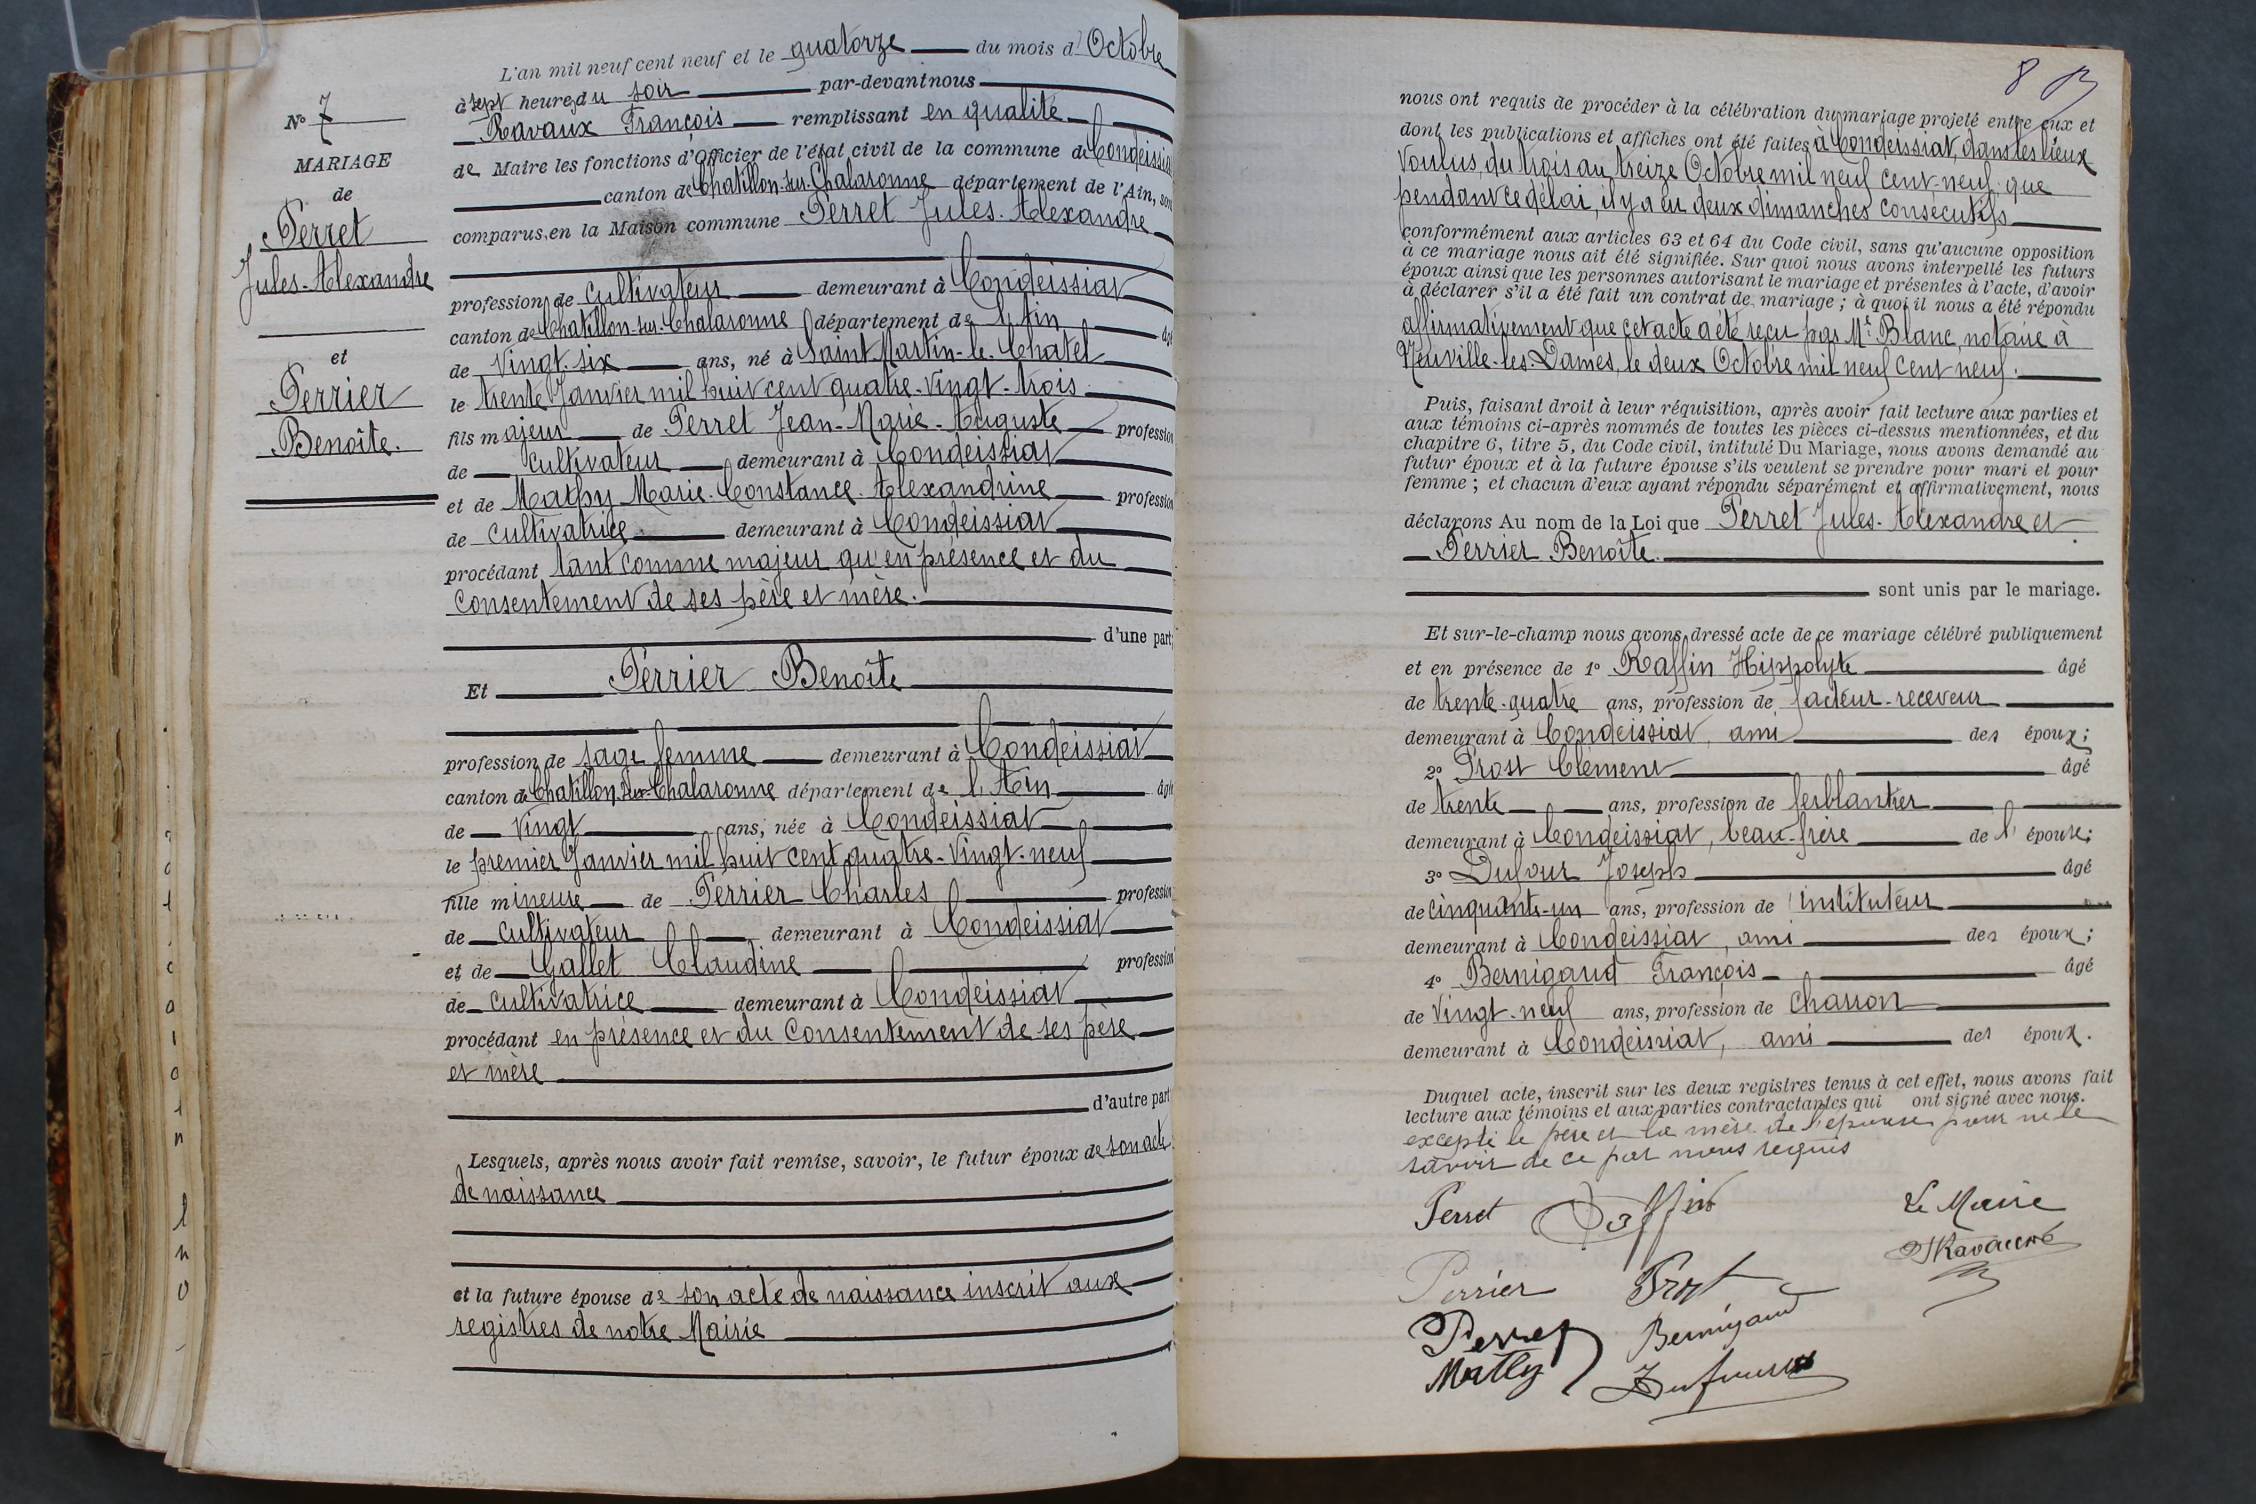 L'an mil neuf cent neuf et le quatorze du mois d'Octobre
à sept heures du soir par-devant nous
Ravaux François remplissant en qualité
de Maire les fonctions d'Officier de l'état civil de la commune de Condeissiat
canton de Chatillon-sur-Chalaronne département de l'Ain, sont
comparus, en la Maison commune Perret Jules-Alexandre
profession de cultivateur demeurant à Condeissiat
canton de Chatillon-sur-Chalaronne département de l'Ain âgé
de Vingt-six ans, né à Saint-Martin-le-Chatel
le trente Janvier mil huit cent quatre-vingt-trois
fils majeur de Perret Jean-Marie-Auguste profession
de cultivateur demeurant à Condeissiat
et de Mathy Marie-Constance-Alexandrine profession
de cultivatrice demeurant à Condeissiat
procédant tant comme majeur qu'en présence et du
consentement de ses père et mère.
d'une part;
Et Perrier Benoîte
profession de sage femme demeurant à Condeissiat
canton de Chatillon-sur-Chalaronne département de l'Ain âgée
de Vingt ans, née à Condeissiat
le premier Janvier mil huit cent quatre-vingt-neuf
fille mineure de Perrier Charles profession
de cultivateur demeurant à Condeissiat
et de Gallet Claudine profession
de cultivatrice demeurant à Condeissiat
procédant en présence et du consentement de ses père
et mère
d'autre part
Lesquels, après nous avoir fait remise, savoir, le futur époux de son acte
de naissance
et la future épouse de son acte de naissance inscrit aux
registres de notre Mairie
No 7
MARIAGE
de
Perret
Jules-Alexandre
et
Perrier
Benoîte.
8
nous ont requis de procéder à la célébration du mariage projeté entre eux et
dont les publications et affiches ont été faites à Condeissiat, dans les lieux
voulus, du trois au treize Octobre mil neuf cent-neuf. que
pendant ce délai, il y a eu deux dimanches consécutifs
conformément aux articles 63 et 64 du Code civil, sans qu'aucune opposition
à ce mariage nous ait été signifiée. Sur quoi nous avons interpellé les futurs
époux ainsi que les personnes autorisant le mariage et présentes à l'acte, d'avoir
à déclarer s'il a été fait un contrat de mariage ; à quoi il nous a été répondu
affirmativement que cet acte a été reçu par Me Blanc, notaire à
Neuville-les-Dames, le deux Octobre mil neuf cent neuf.
Puis, faisant droit à leur réquisition, après avoir fait lecture aux parties et
aux témoins ci-après nommés de toutes les pièces ci-dessus mentionnées, et du
chapitre 6, titre 5, du Code civil, intitulé Du Mariage, nous avons demandé au
futur époux et à la future épouse s'ils veulent se prendre pour mari et pour
femme ; et chacun d'eux ayant répondu séparément et affirmativement, nous
déclarons Au nom de la Loi que Perret Jules-Alexandre et
Perrier Benoîte.
sont unis par le mariage.
Et sur-le-champ nous avons dressé acte de ce mariage célébré publiquement
et en présence de 1º Raffin Hippolyte âgé
de trente-quatre ans, profession de facteur-receveur
demeurant à Condeissiat, ami des époux;
2º Prost Clément âgé
de trente ans, profession de ferblantier
demeurant à Condeissiat, beau-frère de l'épouse;
3º Dufour Joseph âgé
de cinquante-un ans, profession de instituteur
demeurant à Condeissiat, ami des époux;
4º Bernigaud François âgé
de Vingt-neuf ans, profession de charron
demeurant à Condeissiat, ami des époux.
Duquel acte, inscrit sur les deux registres tenus à cet effet, nous avons fait
lecture aux témoins et aux parties contractantes qui ont signé avec nous.
excepté le père et la mère de l'épouse pour ne le
savoir de ce par nous requis
Perret Raffin Le Maire
Ravaux
Perrier Prost
Perret Bernigaud
Mathy Dufour